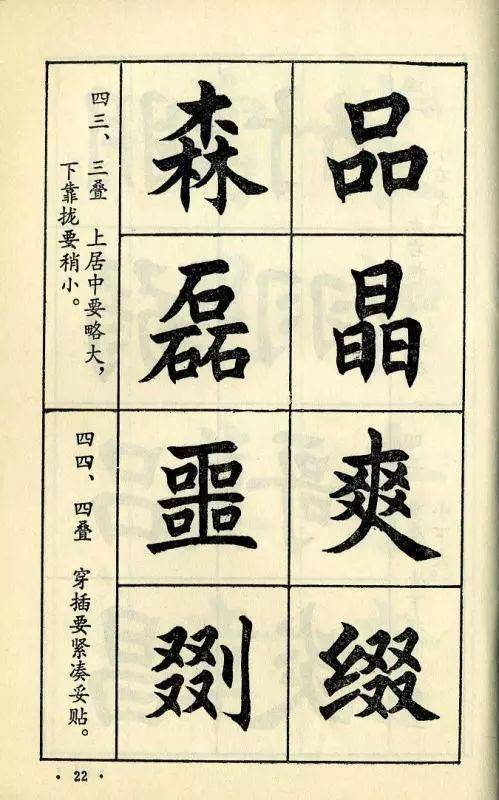 品
晶
爽
缀
森
磊
噩
剟
四三、三叠 上居中要略大，
下靠拢要稍小。
四四、四叠 穿插要紧凑妥贴。
· 22 ·